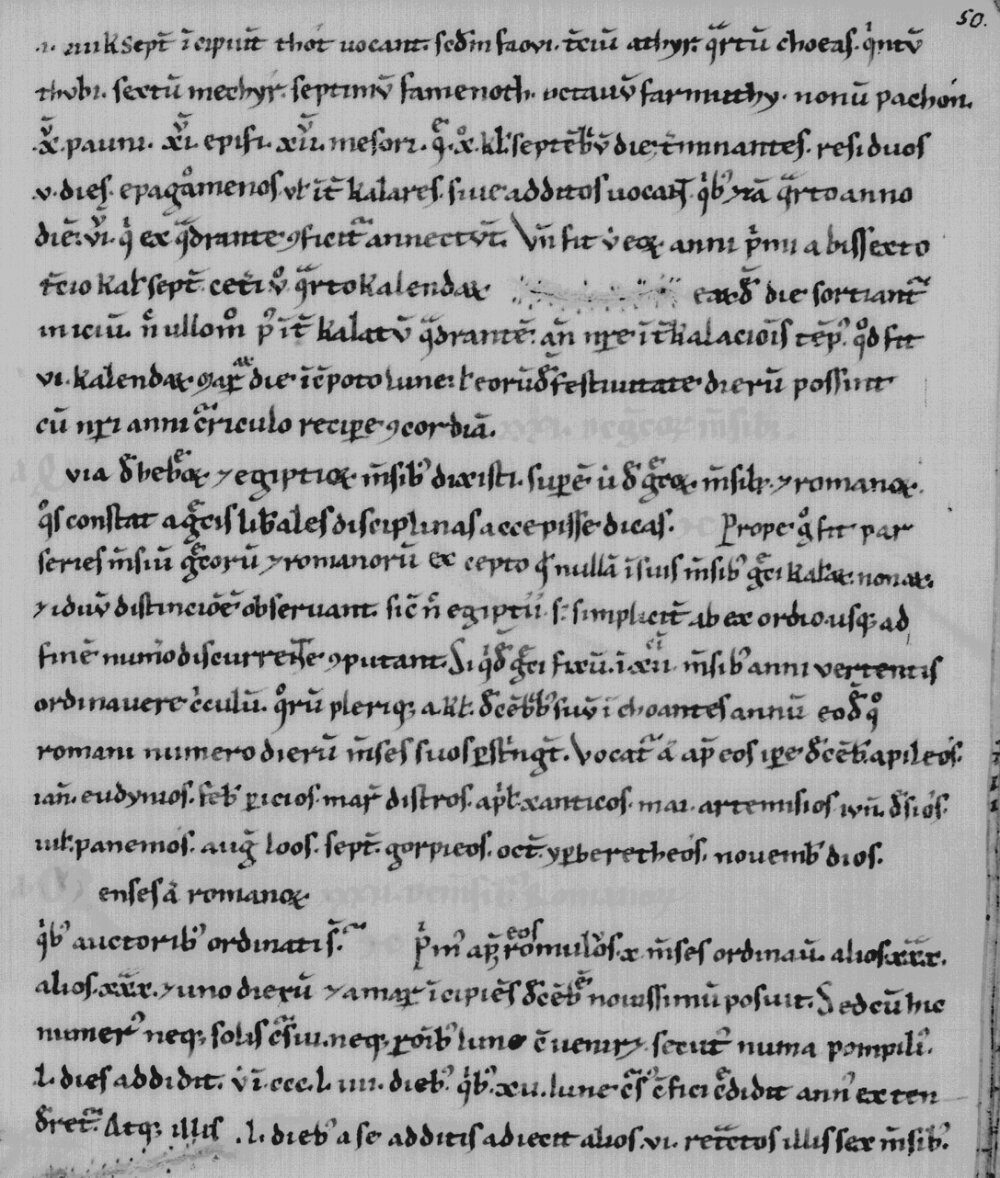 50.
.a. iiii k sept̄ īcipiūt thot uocant. scd̄m faovi. t̄ciū athyr. qᷓrtū choeas. qⁱntū
thvbi. sextū mechyr. septimū famenoth. octauū farmuthy. nonū pachon.
.x̄. pauni. xi. epifi. xii. mesori. q̄. x. kl̄ septēb̄ die t̄minantes. residuos
.v. dies. epagomenos uł īt̄kalares. siue additos uocant̄. qⁱb᷒ ⁊iā qᷓrto anno
diē. vi. qⁱ ex qᷓdrante ꝯficit᷑ annectūt. Vn̄ fit ut eoꝝ anni p̄mi a bissexto
t̄cio kal̄ sept̄. cet̄i ů qᷓrto kalendaꝝ earūd̄ die sortiant᷑
iniciū. n̄ ullom̊ p̄ īt̄kalatū qᷓdrantē. an̄ nr̄e īt̄kalacioīs tēp᷒. qd̊ fit
vi. kalendaꝝ mar᷑. die ī ꝯpoto lune. ł eorūd̄ festiuitate dierū possint
cū nr̄i anni c᷑riculo recipere ꝯcordiā.
via d̄ hebᵉoꝝ ⁊ egiptioꝝ m̄sib᷒ dixisti. superē ut d̄ gᵉcoꝝ m̄sib᷒. ⁊ romanoꝝ.
qͦs constat a gᵉcis lib̄ales disciplinas accepisse dicas. Prope gͦ fit par
series m̄siū gᵉcorū ⁊ romanorū excepto qd̄ nullā ī suis m̄sib᷒ gᵉci kal̄aꝝ. nonaꝝ.
⁊ iduū distinciōē observant. sic̄ n̄ egiptii. s; simplicit̄ ab exordio. usq; ad
finē num̄o discurrente ꝯputant. Si qⁱd̄ gᵉci fixū. ī xii. m̄sib᷒ anni vertentis
ordinavere c̄culū. qͦrū pleriq; a. kl̄. d̄cēb᷒b᷒ suū īchoantes annū eod̄ qͦ
romani numero dierū m̄ses suos p̄st̄ngt̄. Vocat᷑ ā ap̄ eos ipse d̄cēb. apileos.
ian̄. eudynios. feb̄ pericios. mar᷑ distros. apⁱl. xanticos. mai. artemisios. iun̄. d̄sios.
iul̄. panemos. aug᷑ loos. sept̄. gorpieos. oct̄. yperberetheos. novemb᷒ dios.
enses ā romanoꝝ
qⁱb᷒ auctorib᷒ ordinati s̄. Pⁱm᷒ ap̄ eos romulus. x. m̄ses ordinau̅. alios. xxx.
alios. xxx. ⁊ uno dierū ⁊ a mar᷑ īcipiēs d̄cēbᵉ nouissimū posuit. Sed cū hic
numer᷒ neq; solis c᷑sui. neq; ꝑoib᷒ lune ꝯueniret. secut᷒ numa pompili᷒.
.l. dies addidit. ut ī. ccc. l. iiii. dieb᷒ qⁱb᷒. xii. lune c᷑s᷒ ꝯfici c̄didit ann᷒ exten
d̄ret᷑. Atq; illis .l. dieb᷒ a se additis adiecit alios. vi. ret᷑ctos illis sex m̄sib᷒.